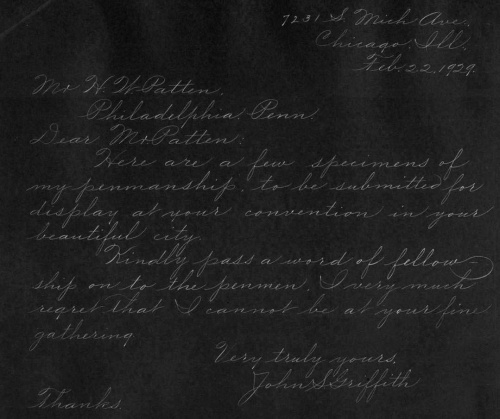 7231 S. Mich Ave.
Chicago, Ill.
Feb. 22, 1929.
Mr H. W. Patten,
Philadelphia, Penn.
Dear Mr Patten:
Here are a few specimens of
my penmanship, to be submitted for
display at your convention in your
beautiful city.
Kindly pass a word of fellow
ship on to the penmen. I very much
regret that I cannot be at your fine
gathering.
Very truly yours,
John S Griffith
Thanks.